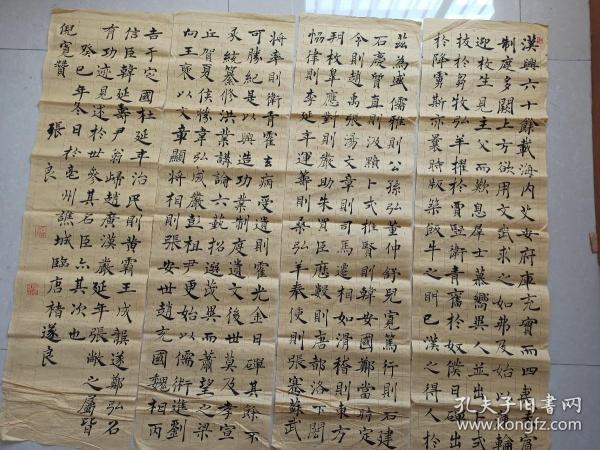 漢興六十餘載海内艾安府庫充實而四夷未賓
制度多闕上方欲用文武求之如弗及始以蒲輪
迎枚生見主父而歎息群士慕嚮異人並出卜式
拔於芻牧弘羊擢於賈豎衛青奮於奴僕日磾出
於降虜斯亦曩時版築飯牛之朋已漢之得人於
茲為盛儒雅則公孫弘董仲舒兒寬篤行則石建
石慶質直則汲黯卜式推賢則韓安國鄭當時定
令則趙禹張湯文章則司馬遷相如滑稽則東方
朔枚皋應對則嚴助朱買臣歷數則唐都洛下閎
協律則李延年運籌則桑弘羊奉使則張騫蘇武
將率則衛青霍去病受遺則霍光金日磾其餘不
可勝紀是以興造功業制度遺文後世莫及孝宣
承統纂修洪業講論六藝招選茂異而蕭望之梁
丘賀夏侯勝韋弘成嚴彭祖尹更始以儒術進劉
向王褒以文章顯將相則張安世趙充國魏相丙
吉于定國杜延年治民則黃霸王成龔遂鄭弘召
信臣韓延壽尹翁歸趙廣漢嚴延年張敞之屬皆
有功迹見述於世參其名臣亦其次也
癸巳年冬日於亳州譙城臨唐褚遂良
倪寬贊 張良
孔夫子旧书网
www.kongfz.com